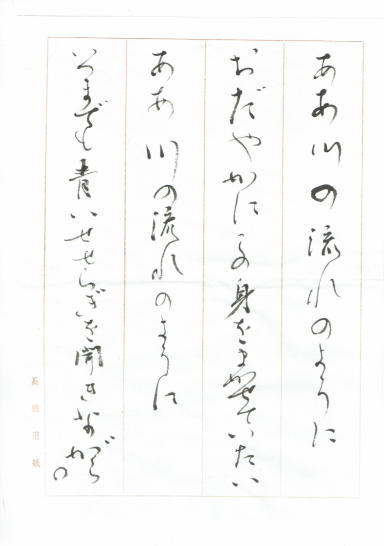 ああ川の流れのように
おだやかにこの身をまかせていたい
ああ川の流れのように
いつまでも青いせせらぎを聞きながら